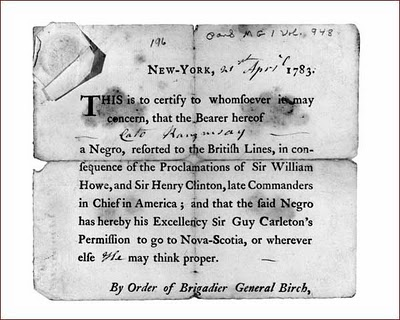 196 M G 1 Vol. 948
NEW-YORK, 21st April 1783.
THIS is to certify to whomſoever it may
concern, that the Bearer hereof
Cato Rammsay
a Negro, reſorted to the Britiſh Lines, in con-
ſequence of the Proclamations of Sir William
Howe, and Sir Henry Clinton, late Commanders
in Chief in America; and that the ſaid Negro
has hereby his Excellency Sir Guy Carleton's
Permiſſion to go to Nova-Scotia, or wherever
else he may think proper.
By Order of Brigadier General Birch,